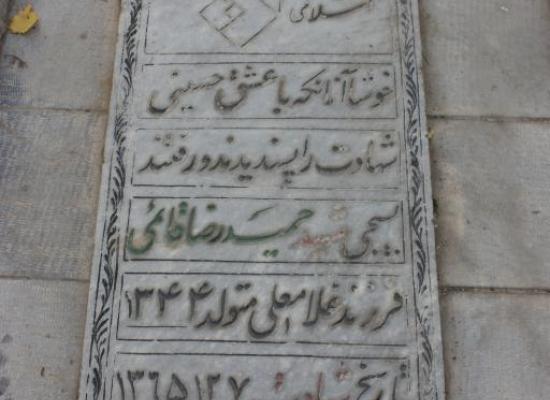 اسلامی
خوشا آنانکه با عشق حسینی
شهادت را پسندیدند و رفتند
بسیجی شهید حمیدرضا قائمی
فرزند غلامعلی متولد ۱۳۴۴
تاریخ شهادت ۱۳۶۵٫۱۲٫۷